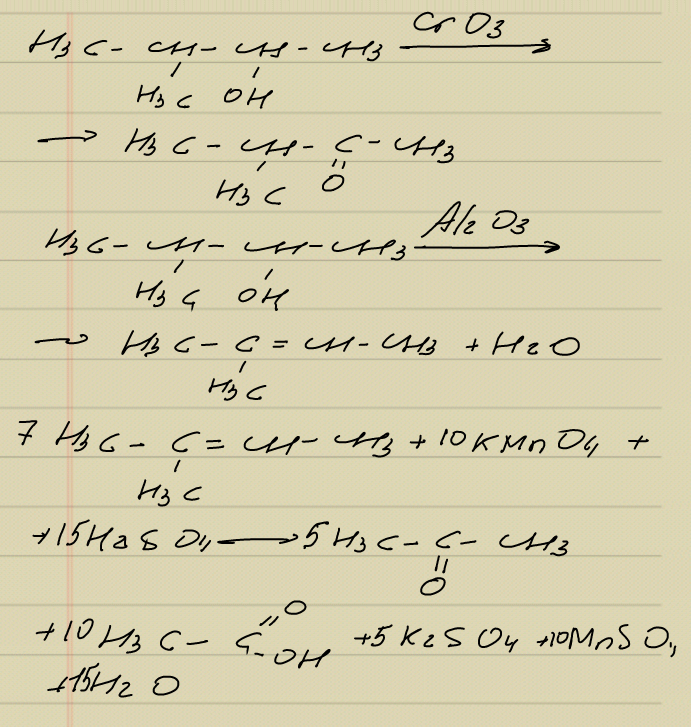 H3C - CH - CH - CH3 CrO3 →
H3C OH
→ H3C - CH - C - CH3
H3C O
H3C - CH - CH - CH3 Al2O3 →
H3C OH
→ H3C - C = CH - CH3 + H2O
H3C
7 H3C - C = CH - CH3 + 10KMnO4 +
H3C
+15H2SO4 → 5H3C - C - CH3
O
O
+10H3C - C - OH +5K2SO4 +10MnSO4
+15H2O